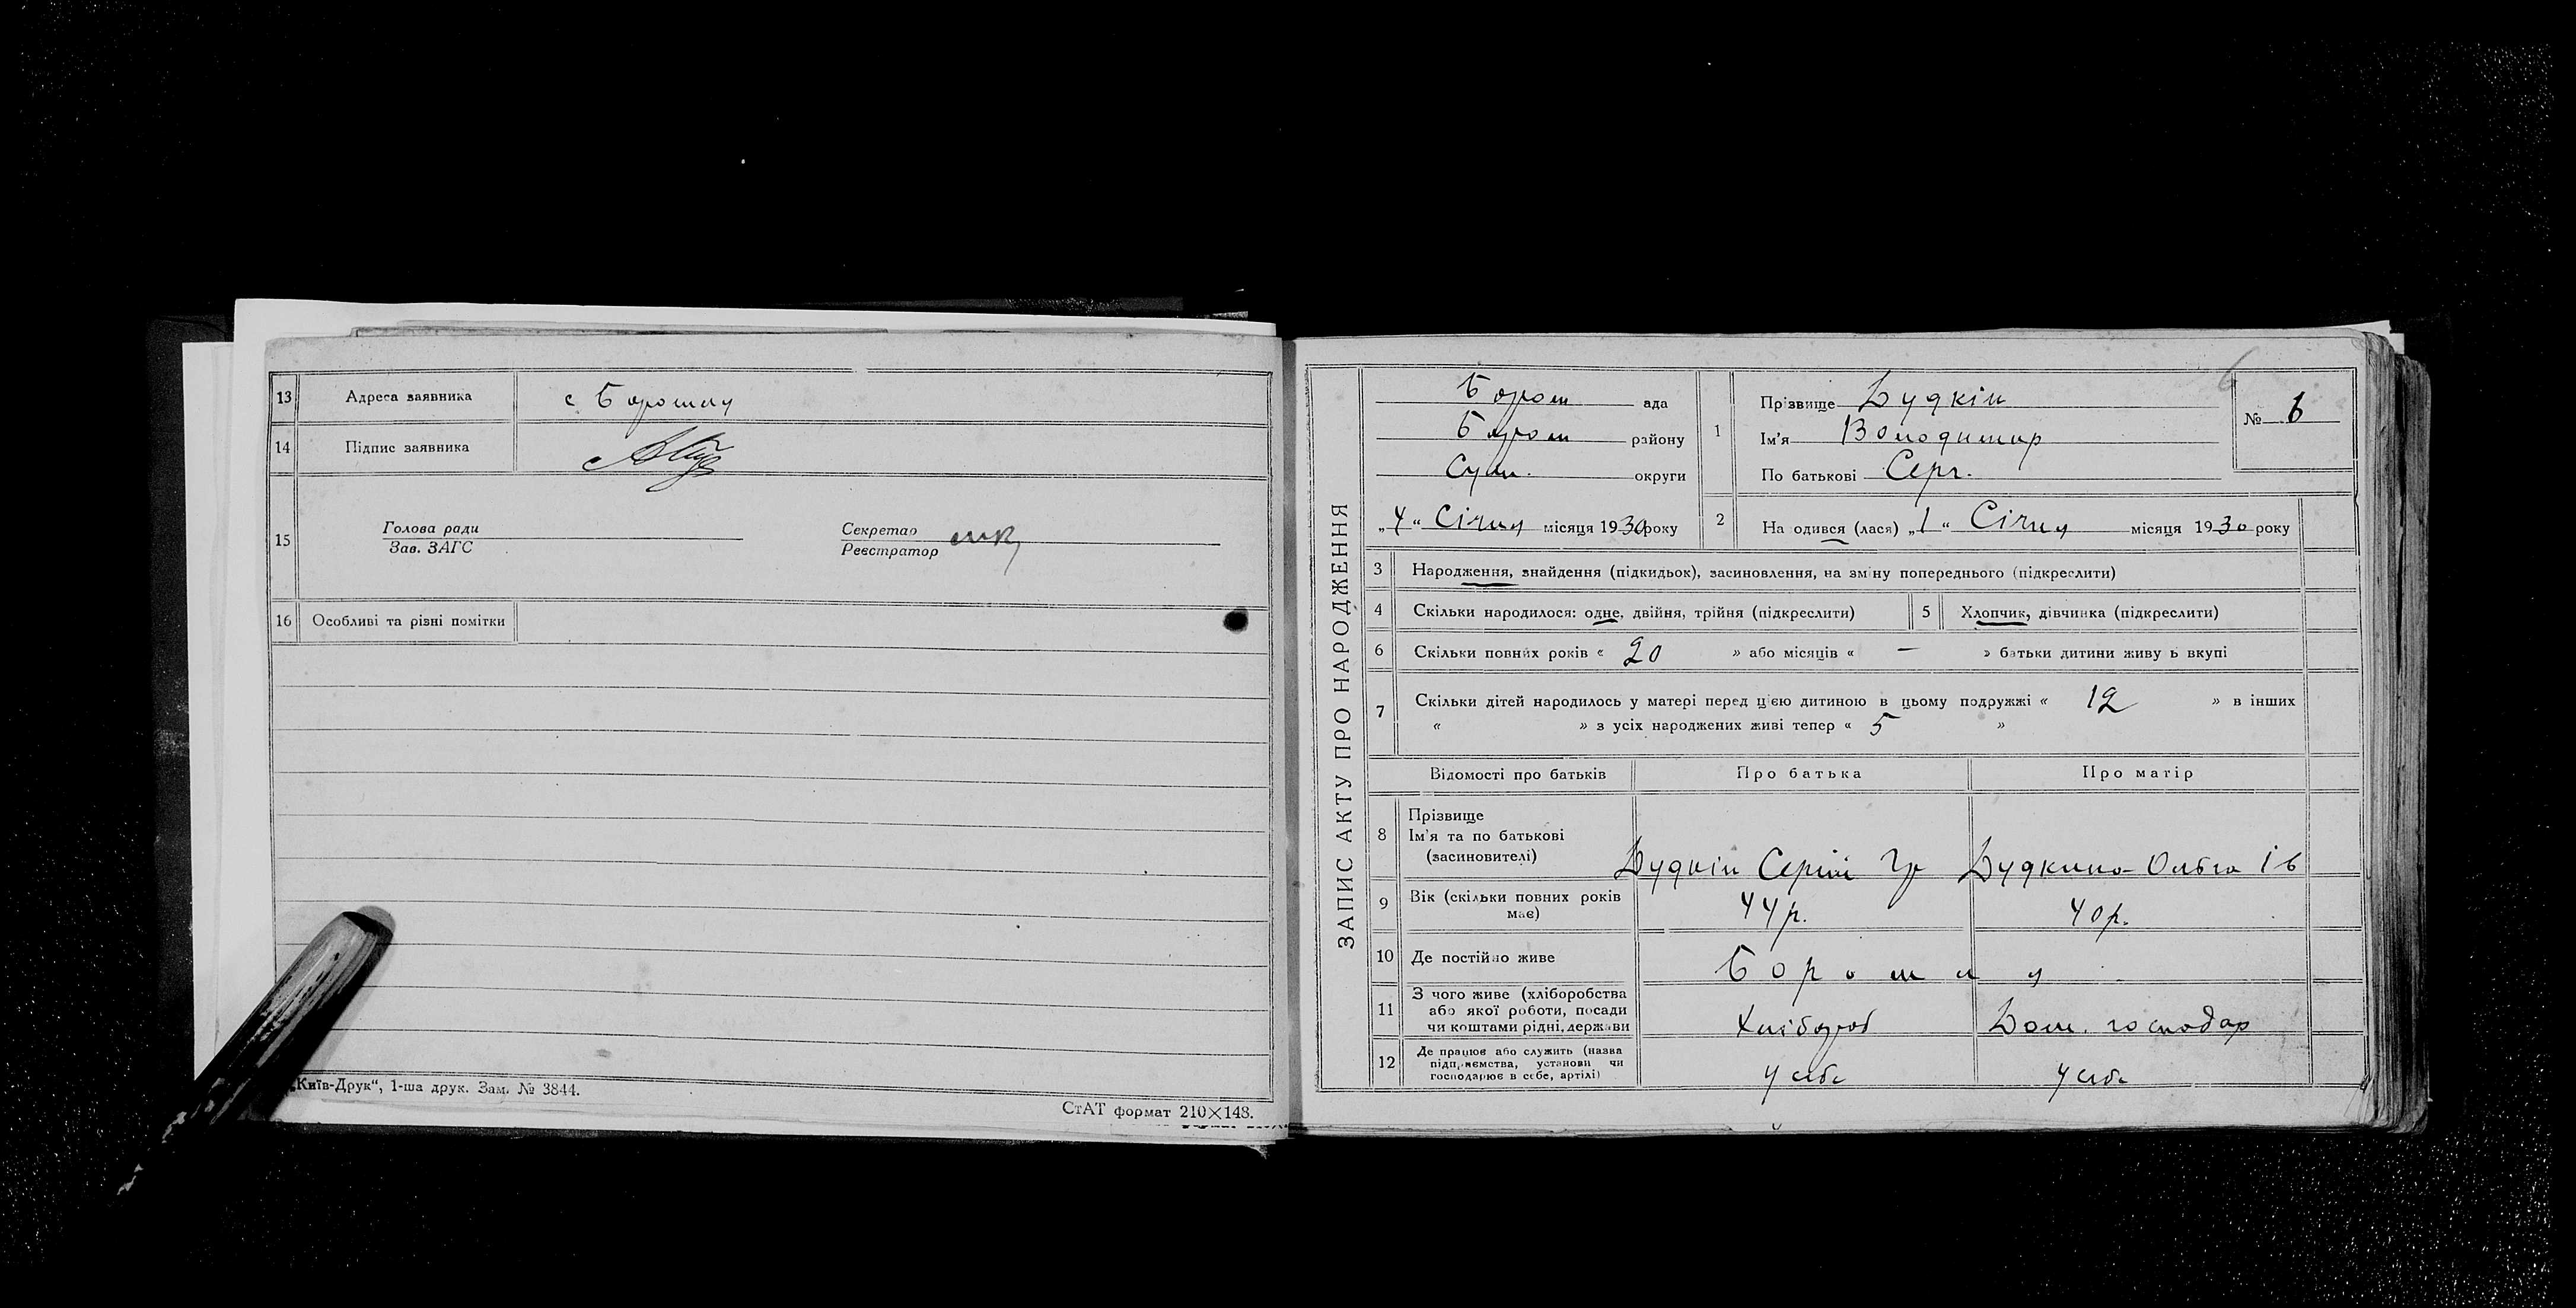 13 Адреса заявника с. Боромля
14 Підпис заявника
15 Голова ради
Зав. ЗАГС
Секретар
Реєстратор
16 Особливі та різні помітки
„Київ-Друк“, 1-ша друк. Зам. № 3844.
СтАТ формат 210×148.
6
ЗАПИС АКТУ ПРО НАРОДЖЕННЯ
Бором ада
Бором району
Сум. округи
„4“ Січня місяця 1930 року
1 Прізвище Будкін
Ім'я Володимир
По батькові Серг.
№ 6
2 На одився (лася) „1“ Січня місяця 1930 року
3 Народження, знайдення (підкидьок), засиновлення, на зміну попереднього (підкреслити)
4 Скільки народилося: одне, двійня, трійня (підкреслити)
5 Хлопчик, дівчинка (підкреслити)
6 Скільки повних років « 20 » або місяців « — » батьки дитини живу ь вкупі
7 Скільки дітей народилось у матері перед цією дитиною в цьому подружжі « 12 » в інших
« » з усіх народжених живі тепер « 5 »
Відомості про батьків Про батька Про матір
8 Прізвище
Ім'я та по батькові
(засиновителі)
Будкін Сергій Гр Будкина Ольга Ів
9 Вік (скільки повних років
має)
44р. 40р.
10 Де постійно живе Боромля
11 З чого живе (хліборобства
або якої роботи, посади
чи коштами рідні, держави
Хлібороб Дом. господар
12 Де працює або служить (назва
підприємства, установи чи
господарює в себе, артілі)
у себе у себе